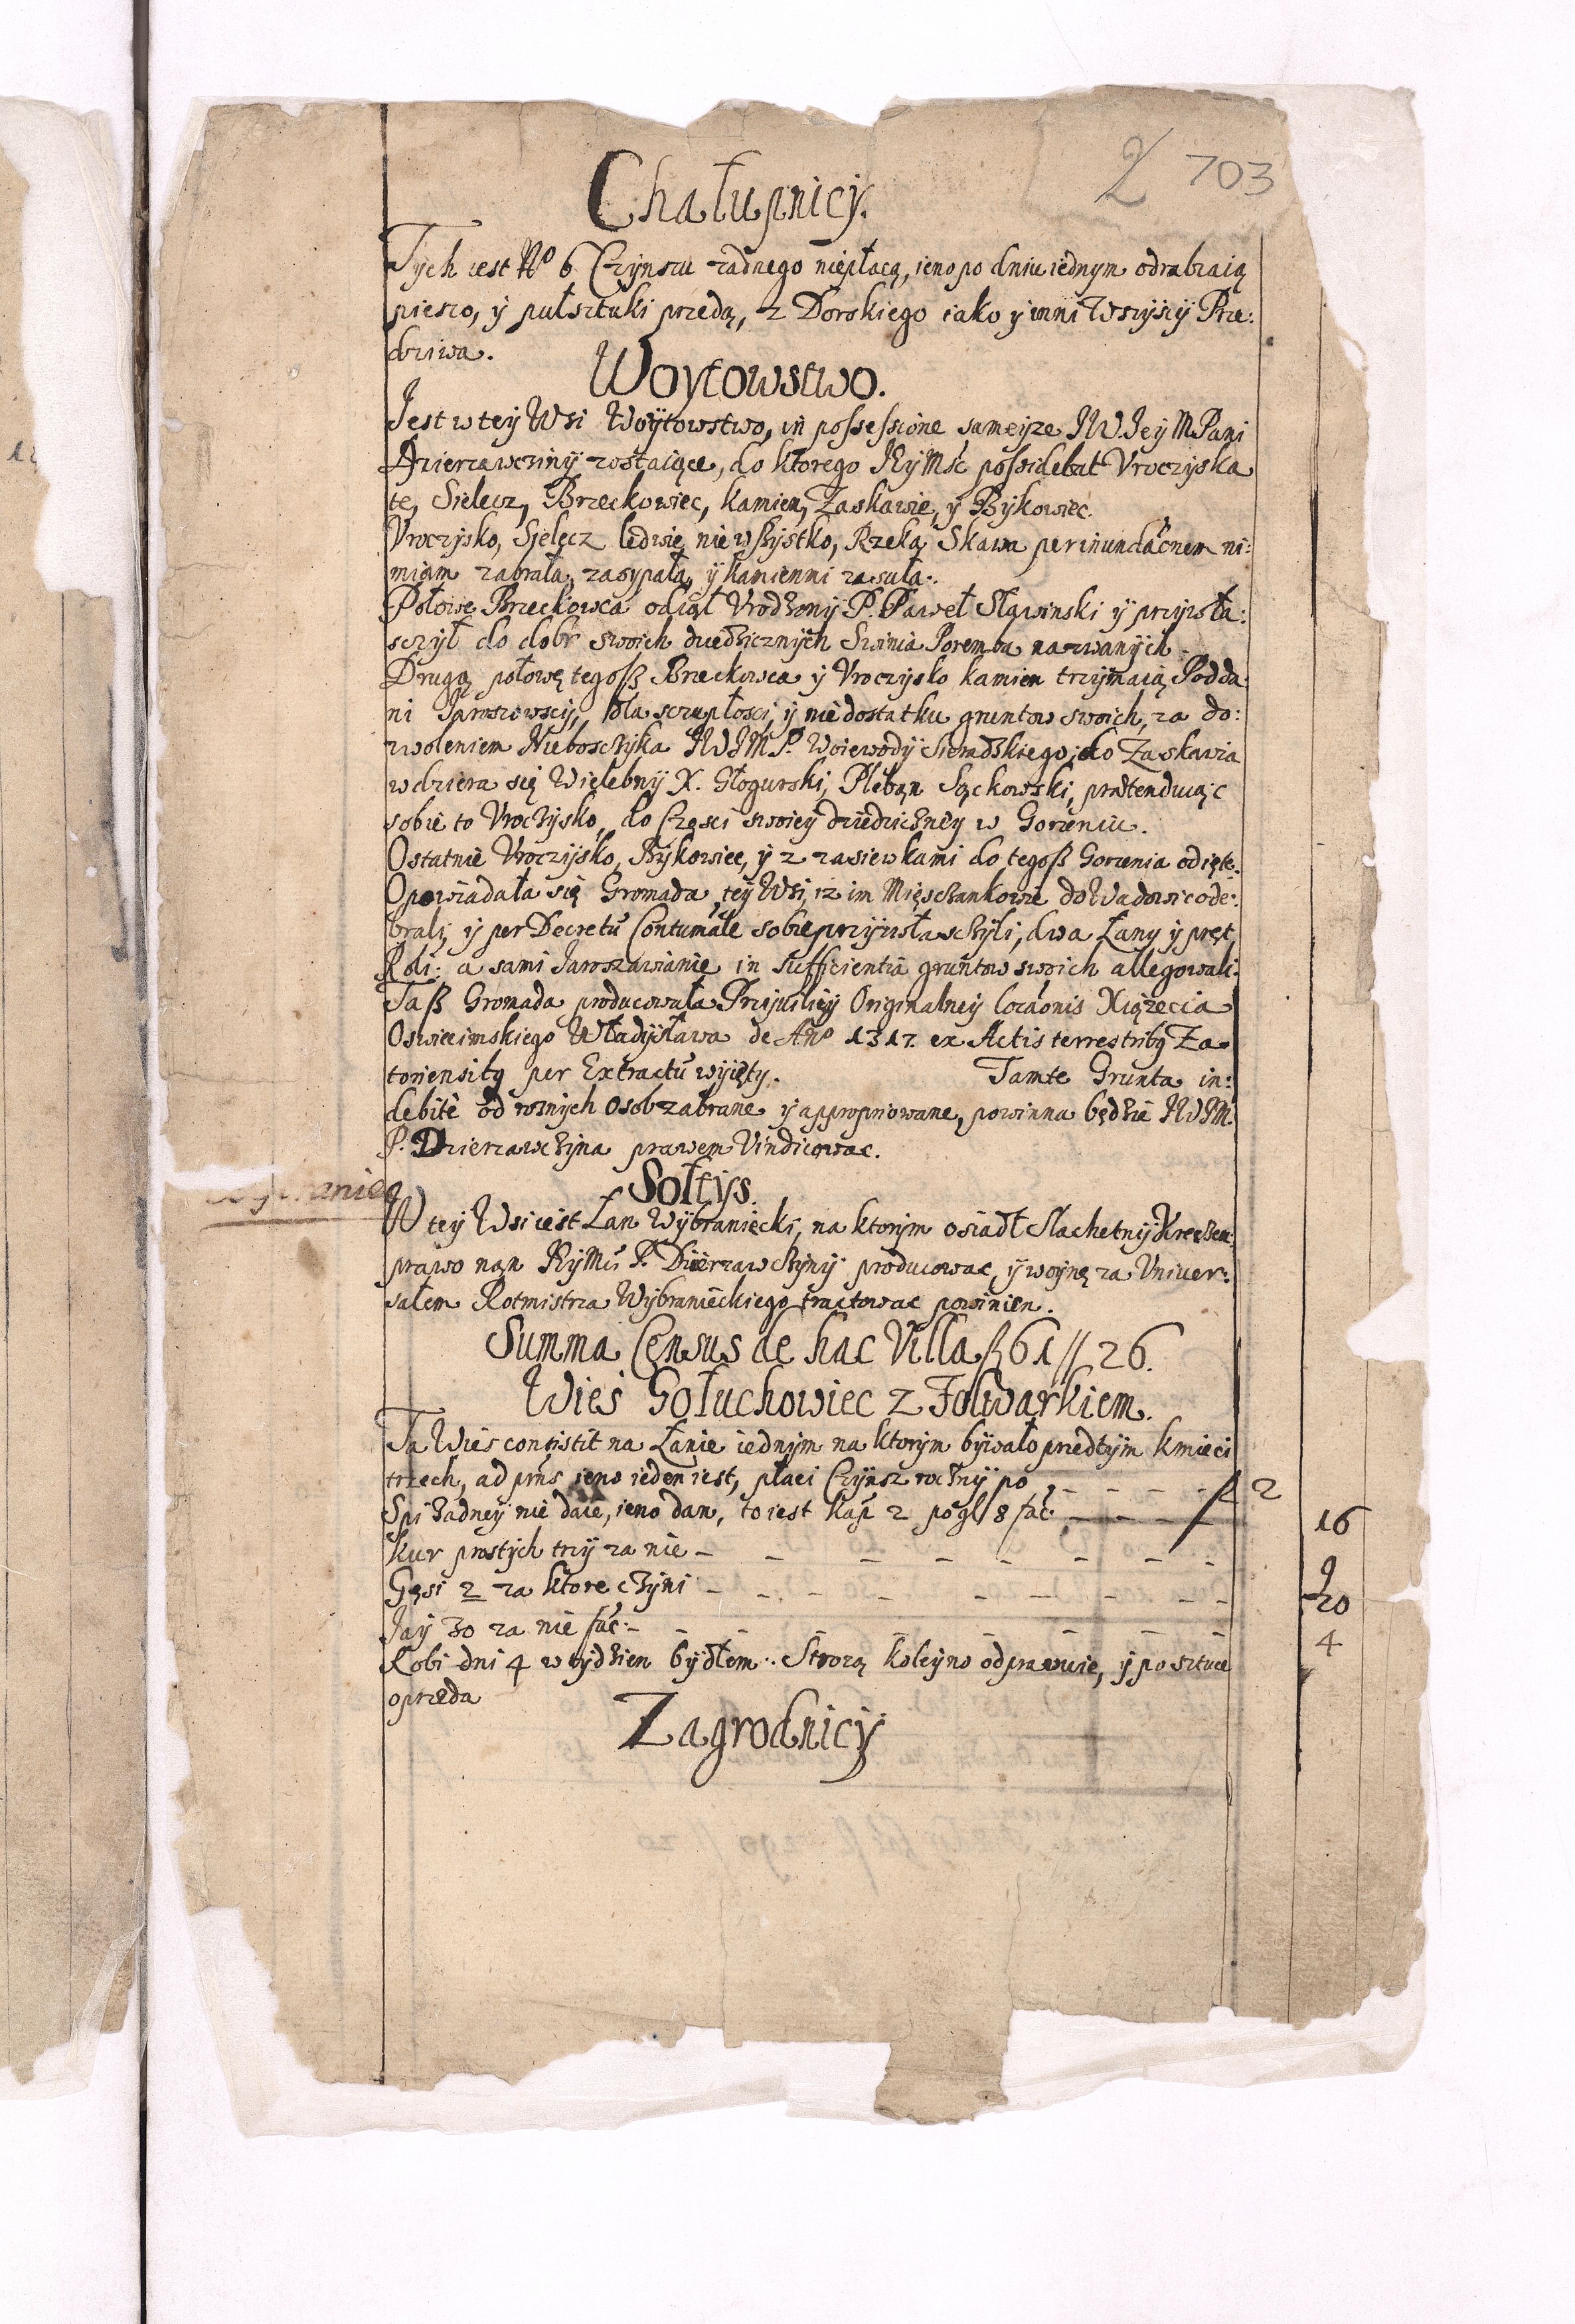 2 703
Chałupnicy.
Tych iest No 6 Czynszu zadnego niepłacą, ieno po dniu iednym odrabiaią
pieszo, y pułsztuki przedą, z Dworskiego iako y inni Wszyscy Prze:
dziwa.
Woytowstwo.
Jest w tey Wsi Woytowstwo, in possessione sameyze JW Jey M Pani
Dzierzawczyny zostaiące, do ktorego JKyMsc possidebat Vroczyska
te, Sielecz, Brzeckowiec, Kamien, Zaskawie, y Bykowiec.
Vroczysko, Sielęcz ledwie nie wszystko, Rzeka Skawa per inundacnem ni:
miam zabrała, zasypała, y kamienmi zasuła.
Połowę Brzeckowca odiął Vrodzony P. Paweł Sławinski y przywła:
szczył do dobr swoich dziedzicznych Swinia Poremba nazwanych
Drugą połowę tegosz Brzeckowca y Vroczysko kamien trzymaią Podda:
ni Jaroszowscy, dla szczupłosci, y niedostatku gruntow swoich, za do:
zwoleniem Nieboszczyka JWJM P. Woiewody Sieradzkiego; do Zaskawia
wdziera się Wielebny X. Głogurski, Pleban Sąckowski, prætenduiąc
sobie to Vroczysko, do Częsci swoiey dziedziczney w Gorzeniu.
Ostatnie Vroczysko, Bykowiec, y z zasiewkami do tegosz Gorzenia odięte.
Opowiadała się Gromada tey Wsi, iz im Mięszczankowie do Wadowic ode:
brali, y per Decretu Contumale sobie przywłaszczyli, dwa Łany y pręt
Roli: a sami Jaroszawianie in sufficientia gruntow swoich allegowali.
Tasz Gromada producowała Przywiliey Originalney locaonis Xiązecia
Oswiecimskiego Władysława de Ano 1317. ex Actis terrestribq Za=
toriensibq per Extractu wyięty. Tamte Grunta in:
debite od roznych Osob zabrane y appropriowane, powinna będzie JWJM.
P. Dzierzawczyna prawem Vindicowac.
Sołtys.
W tey Wsi iest Łan Wybraniecki, na ktorym osiadł Slachetny
prawo nan JKyMci P. Dzierzawczyny producowac, y woynę za Vniwer:
sałem Rotmistrza Wybranieckiego tractowac powinien.
Summa Census de hac Villa f 61 // 26.
Wies Gołuchowiec z Folwarkiem.
Ta Wies consistit na Łanie iednym na ktorym bywało przedtym kmieci
trzech, ad prns ieno ieden iest, płaci Czynsz roczny po - - - f 2
Spi zadney nie daie, ieno dan, to iest kap 2 po gl 8 fac - - - 16
kur prostych trzy za nie - - - 9
Gęsi 2 za ktore czyni - - - 20
Jay 30 za nie fac - - - 4
Robi dni 4 w tydzien bydłem. Strozą koleyno odprawuie, y po sztuce
oprzeda
Zagrodnicy